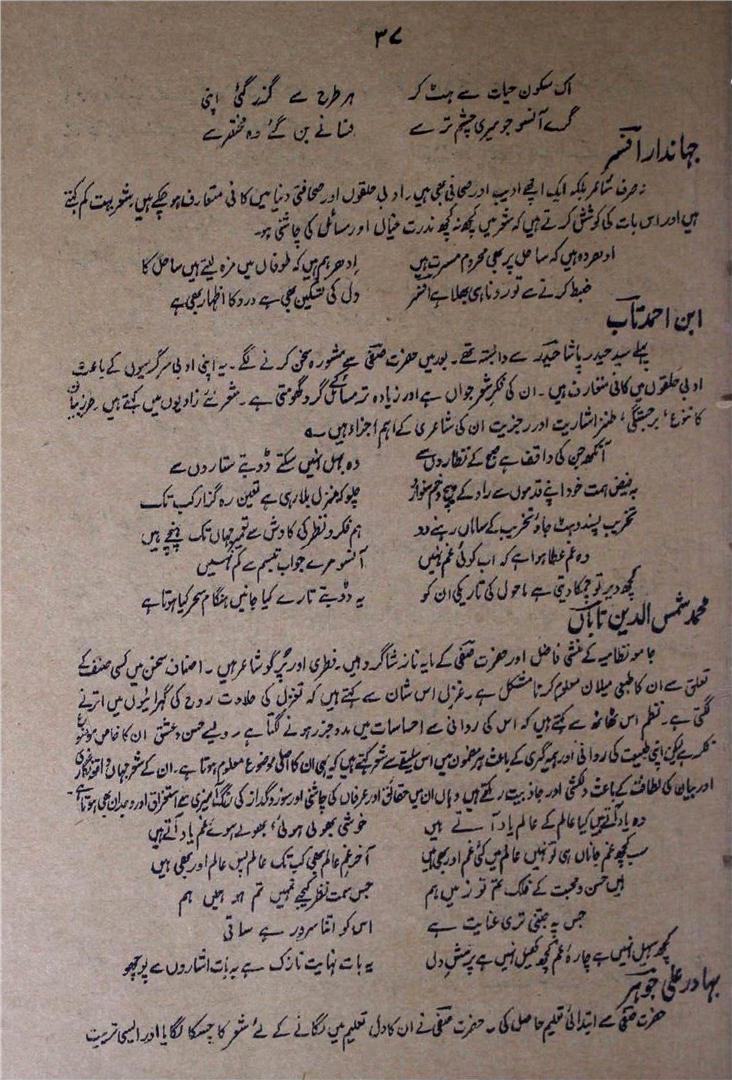 ۳۷
اک سکون حیات سے ہٹ کر ہر طرح سے گذر گئی اپنی
گرے آنسو جو میری چشم تر سے فسانے بن گئے وہ مختصر سے
جہاندار افسر
نہ صرف شاعر بلکہ ایک اچھے ادیب اور صحافی بھی ہیں۔ ادبی حلقوں اور صحافتی دنیا میں کافی متعارف ہو چکے ہیں شعر بہت کم کہتے
ہیں اور اس بات کی کوشش کرتے ہیں کہ شعر میں کچھ نہ کچھ ندرت خیال اور مسائل کی چاشنی ہو۔
ادھر وہ ہیں کہ ساحل پر بھی محروم مسرت ہیں اِدھر ہم ہیں کہ طوفاں میں مزہ لیتے ہیں ساحل کا
ضبط کرنے سے تو رونا ہی بھلا ہے افسر دل کی تسکین بھی ہے درد کا اظہار بھی ہے
ابن احمد تاب
پہلے سید حیدر پاشا حیدر سے وابستہ تھے۔ بعد میں حضرت صفی سے مشورہ سخن کرنے لگے۔ یہ اپنی ادبی سرگرمیوں کے باعث
ادبی حلقوں میں کافی متعارف ہیں۔ ان کی فکر شعر جواں ہے اور زیادہ تر مسائل کے گرد گھومتی ہے۔ شعر نئے زاویوں میں کہتے ہیں۔ طرز بیان
کا تنوع، برجستگی، طنز اشاریت اور رجزیت ان کی شاعری کے اہم اجزاء ہیں۔
آنکھ جن کی واقف ہے صبح کے نظاروں سے وہ بہل نہیں سکتے ڈوبتے ستاروں سے
بہ فیض ہمت خود اپنے قدموں سے راہ کے پیچ و خم سنوارو چلو کہ منزل بلا رہی ہے تعین رہ گزار کب تک
تخریب پسندو ہٹ جاؤ تخریب کے ساماں رہنے دو ہم فکر و نظر کی کاوش سے تعمیر جہاں تک پہنچے ہیں
وہ غم عطا ہوا ہے کہ اب کوئی غم نہیں آنسو مرے جواب تبسم سے کم نہیں
کچھ دیر تو چمکا دیتی ہے ماحول کی تاریکی ان کو یہ ڈوبتے تارے کیا جانیں ہنگام سحر کیا ہوتا ہے
محمد شمس الدین تاباں
جامعہ نظامیہ کے منشی فاضل اور حضرت صفی کے مایہ ناز شاگرد ہیں۔ فطری اور پُر گو شاعر ہیں۔ اصناف سخن میں کسی صنف کے
تعلق سے ان کا طبعی میلان معلوم کرنا مشکل ہے۔ غزل اس شان سے کہتے ہیں کہ تغزل کی حلاوت روح کی گہرائیوں میں اترنے
لگتی ہے۔ نظم اس ٹھاٹھ سے کہتے ہیں کہ اس کی روانی سے احساسات میں مدوجزر ہونے لگتا ہے۔ ویسے حسن و عشق ان کا خاص موضوع
فکر ہے لیکن اپنی طبیعت کی روانی اور ہمہ گیری کے باعث ہر مضمون میں اس سلیقے سے شعر کہتے ہیں کہ یہی ان کا اصلی موضوع معلوم ہوتا ہے۔ ان کے شعر جہاں واقعہ نگاری
اور بیان کی لطافت کے باعث دلکشی اور جاذبیت رکھتے ہیں وہاں ان میں حقائق اور عرفاں کی چاشنی اور سوز و گداز کی رنگ آمیزی سے استغراق اور وجدان بھی ہوتا ہے۔
وہ یاد آتے ہیں کیا عالم کے عالم یاد آتے ہیں خوشی بھولی ہوئی، بھولے ہوئے غم یاد آتے ہیں
سب کچھ غم جاناں ہی تو نہیں عالم میں کئی غم اور بھی ہیں آخر غم عالم بھی کب تک عالم بس عالم اور بھی ہیں
ہیں حسن و محبت کے فلک تم تو زمیں ہم جس سمت نظر کیجے تمہیں تم ہو ہمیں ہم
جس پہ جتنی تری عنایت ہے اس کو اتنا سرور ہے ساقی
کچھ سہل نہیں ہے چارۂ غم کچھ کھیل نہیں ہے پرسش دل یہ بات نہایت نازک ہے یہ بات اشاروں سے پوچھو
بہادر علی جوہر
حضرت صفی سے ابتدائی تعلیم حاصل کی۔ حضرت صفی نے ان کا دل تعلیم میں لگانے کے لئے شعر کا چسکا لگایا اور ایسی تربیت